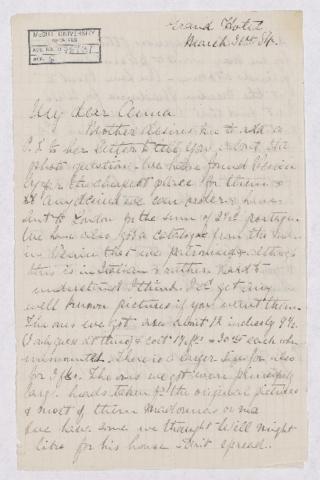 McGILL UNIVERSITY
ARCHIVES
ACC. NO.
REF.
Grand Hotel,
March 30th 84.
My dear Anna
Mother desires me to add a
P.S. to her letter to tell you about the
photo question. We have found Venice
by far the cheapest place for them &
if Anna desired we can order & have
sent to London for the sum of 2/6 postage.
We have also got a catalogue from the man
in Venice that we patronised, although
it is in Italian & rather hard to
understand I think I can get any
well known pictures if you want them.
The ones we got are about 1 ft in.
I guess at this) & cost 1 fr. = 30 cts each when
unmounted. There is a larger size for also
for 3 frs. The ones we got were principally
large heads taken fr the original pictures
& most of them Madonnas or
we have some we thought Will might
like for his house. Don't spread..